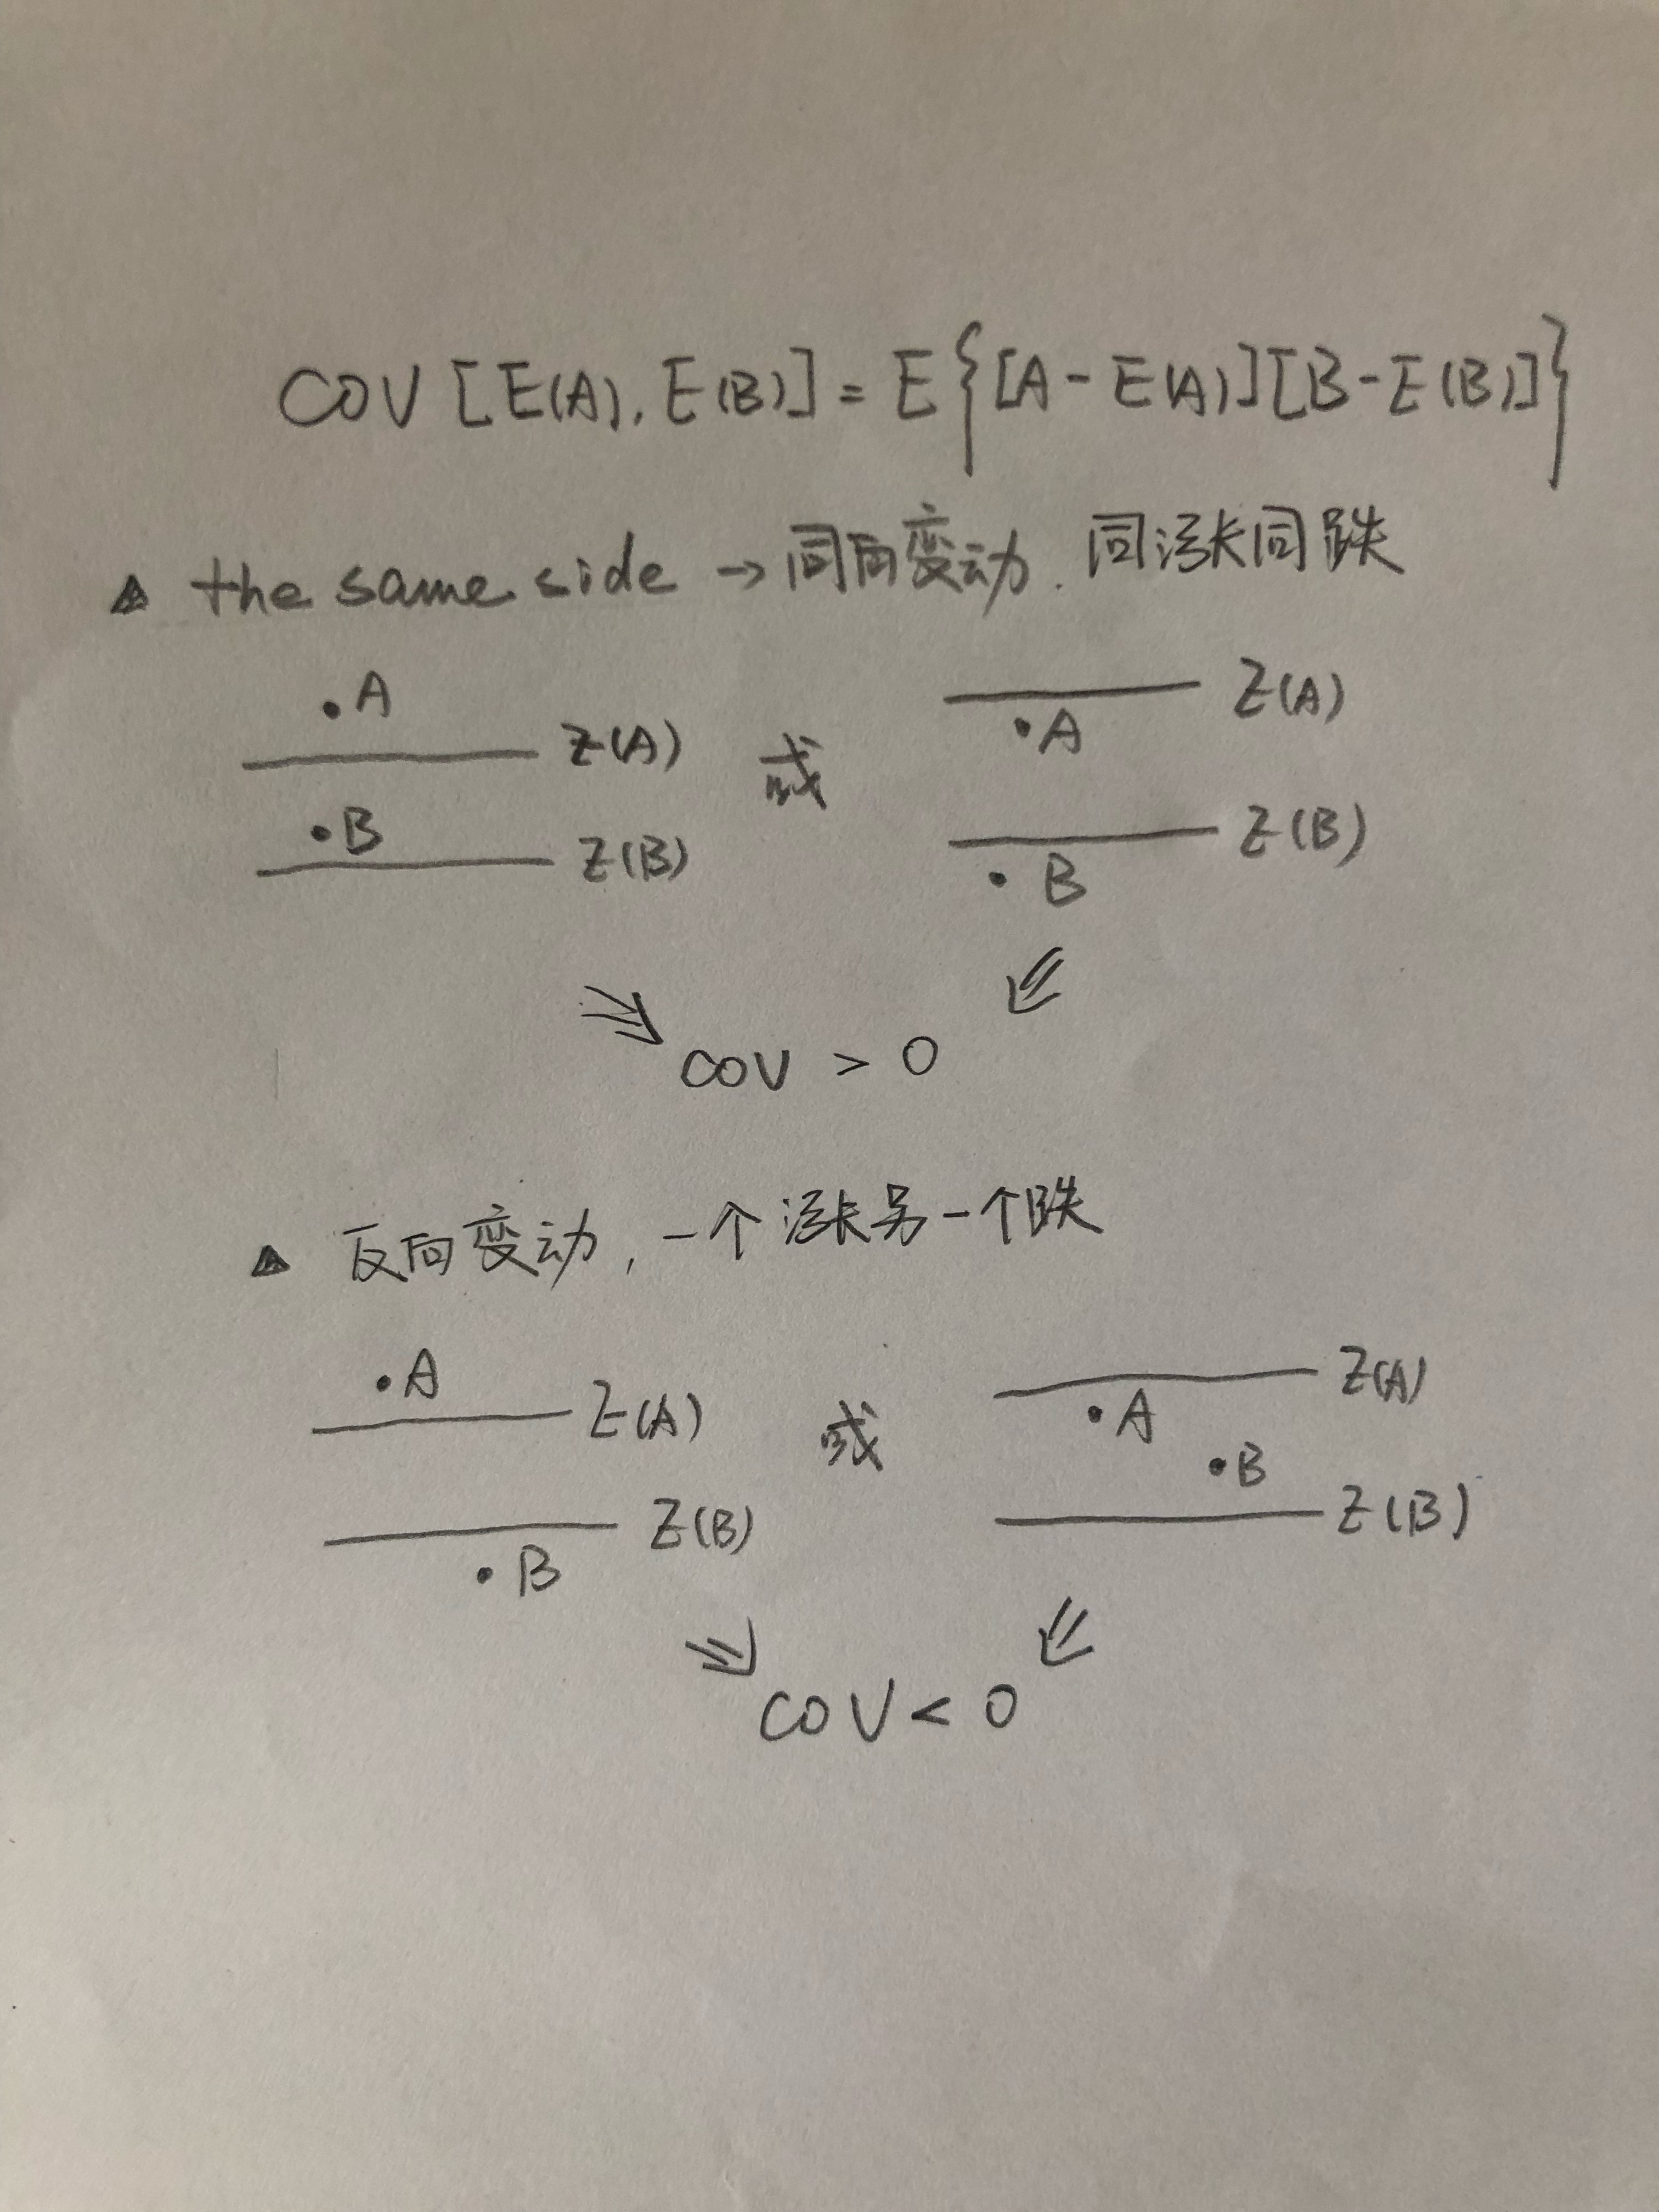 COV [E(A), E(B)] = E{[A - E(A)][B - E(B)]}
▲ the same side → 同向变动. 同涨同跌
·A
E(A)
·B
E(B)
或
E(A)
·A
E(B)
·B
COV > 0
▲ 反向变动, 一个涨另一个跌
·A
E(A)
E(B)
·B
或
E(A)
·A
·B
E(B)
COV < 0